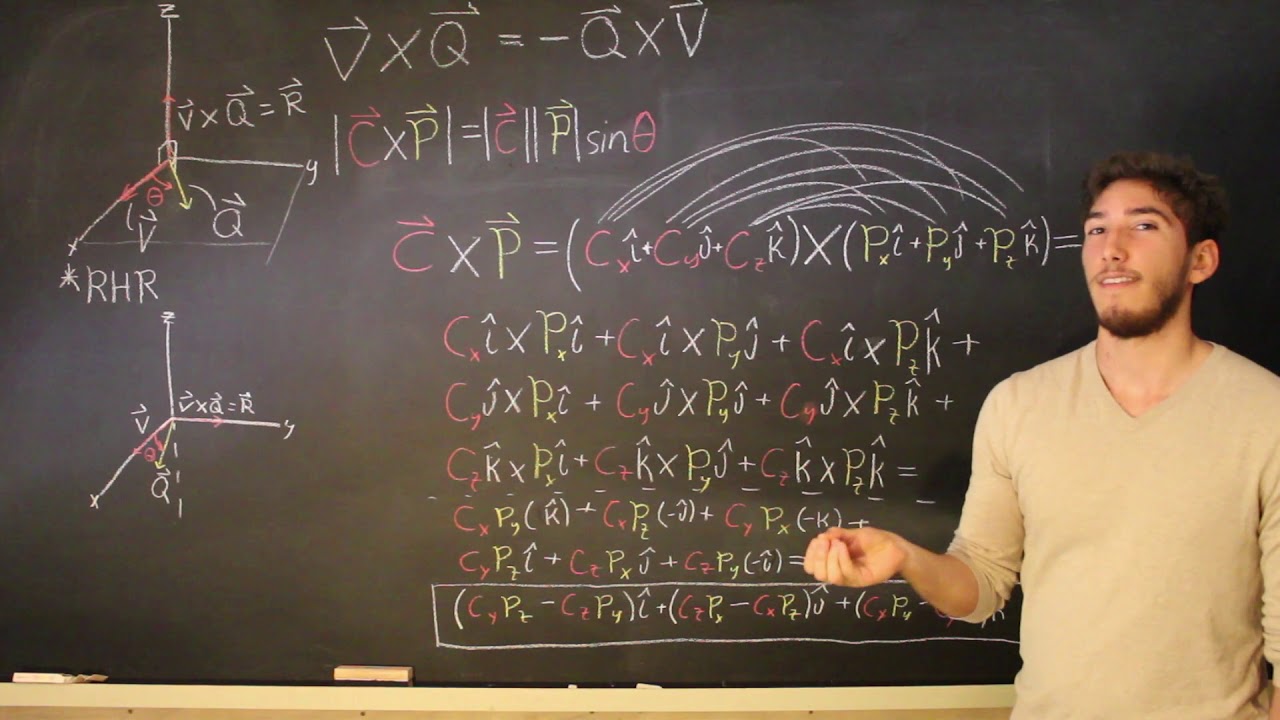 z
V⃗ × Q⃗ = R⃗
y
θ
V⃗
Q⃗
x
*RHR
z
V⃗
V⃗ × Q⃗ = R⃗
y
θ
Q⃗
x
V⃗ × Q⃗ = -Q⃗ × V⃗
|C⃗ × P⃗| = |C⃗||P⃗| sin θ
C⃗ × P⃗ = (Cₓî + C_yĵ + C_zk̂) × (Pₓî + P_yĵ + P_zk̂) =
Cₓî × Pₓî + Cₓî × P_yĵ + Cₓî × P_zk̂ +
C_yĵ × Pₓî + C_yĵ × P_yĵ + C_yĵ × P_zk̂ +
C_zk̂ × Pₓî + C_zk̂ × P_yĵ + C_zk̂ × P_zk̂ =
CₓP_y(k̂) + CₓP_z(-ĵ) + C_yPₓ(-k̂) +
C_yP_zî + C_zPₓĵ + C_zP_y(-î) =
(C_yP_z - C_zP_y)î + (C_zPₓ - CₓP_z)ĵ + (CₓP_y -